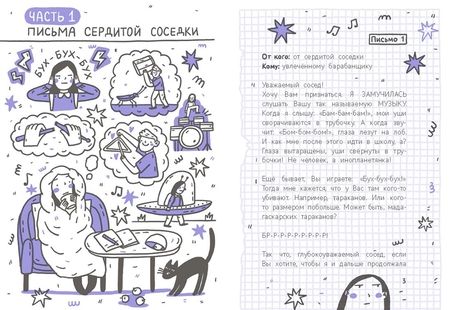 ЧАСТЬ 1
ПИСЬМА СЕРДИТОЙ СОСЕДКИ
БУХ-БУХ-БУХ
Письмо 1
От кого: от сердитой соседки
Кому: увлеченному барабанщику
Уважаемый сосед!
Хочу Вам признаться. Я ЗАМУЧИЛАСЬ
слушать Вашу так называемую МУЗЫКУ.
Когда я слышу: «Бам-бам-бам!», мои уши
сворачиваются в трубочку. А когда зву-
чит: «Бом-бом-бом!», глаза лезут на лоб.
И как мне после этого идти в школу, а?
Глаза вытаращены, уши свернуты в тру-
бочки! Не человек, а инопланетянка!
Ещё бывает, Вы играете: «Бух-бух-бух!»
Тогда мне кажется, что у Вас там кого-то
убивают. Например, тараканов. Или кого-
то размером побольше. Может быть, мада-
гаскарских тараканов?
БР-Р-Р-Р-Р-Р-Р-Р!
Так что, глубокоуважаемый сосед, если
Вы хотите, чтобы я и дальше продолжала